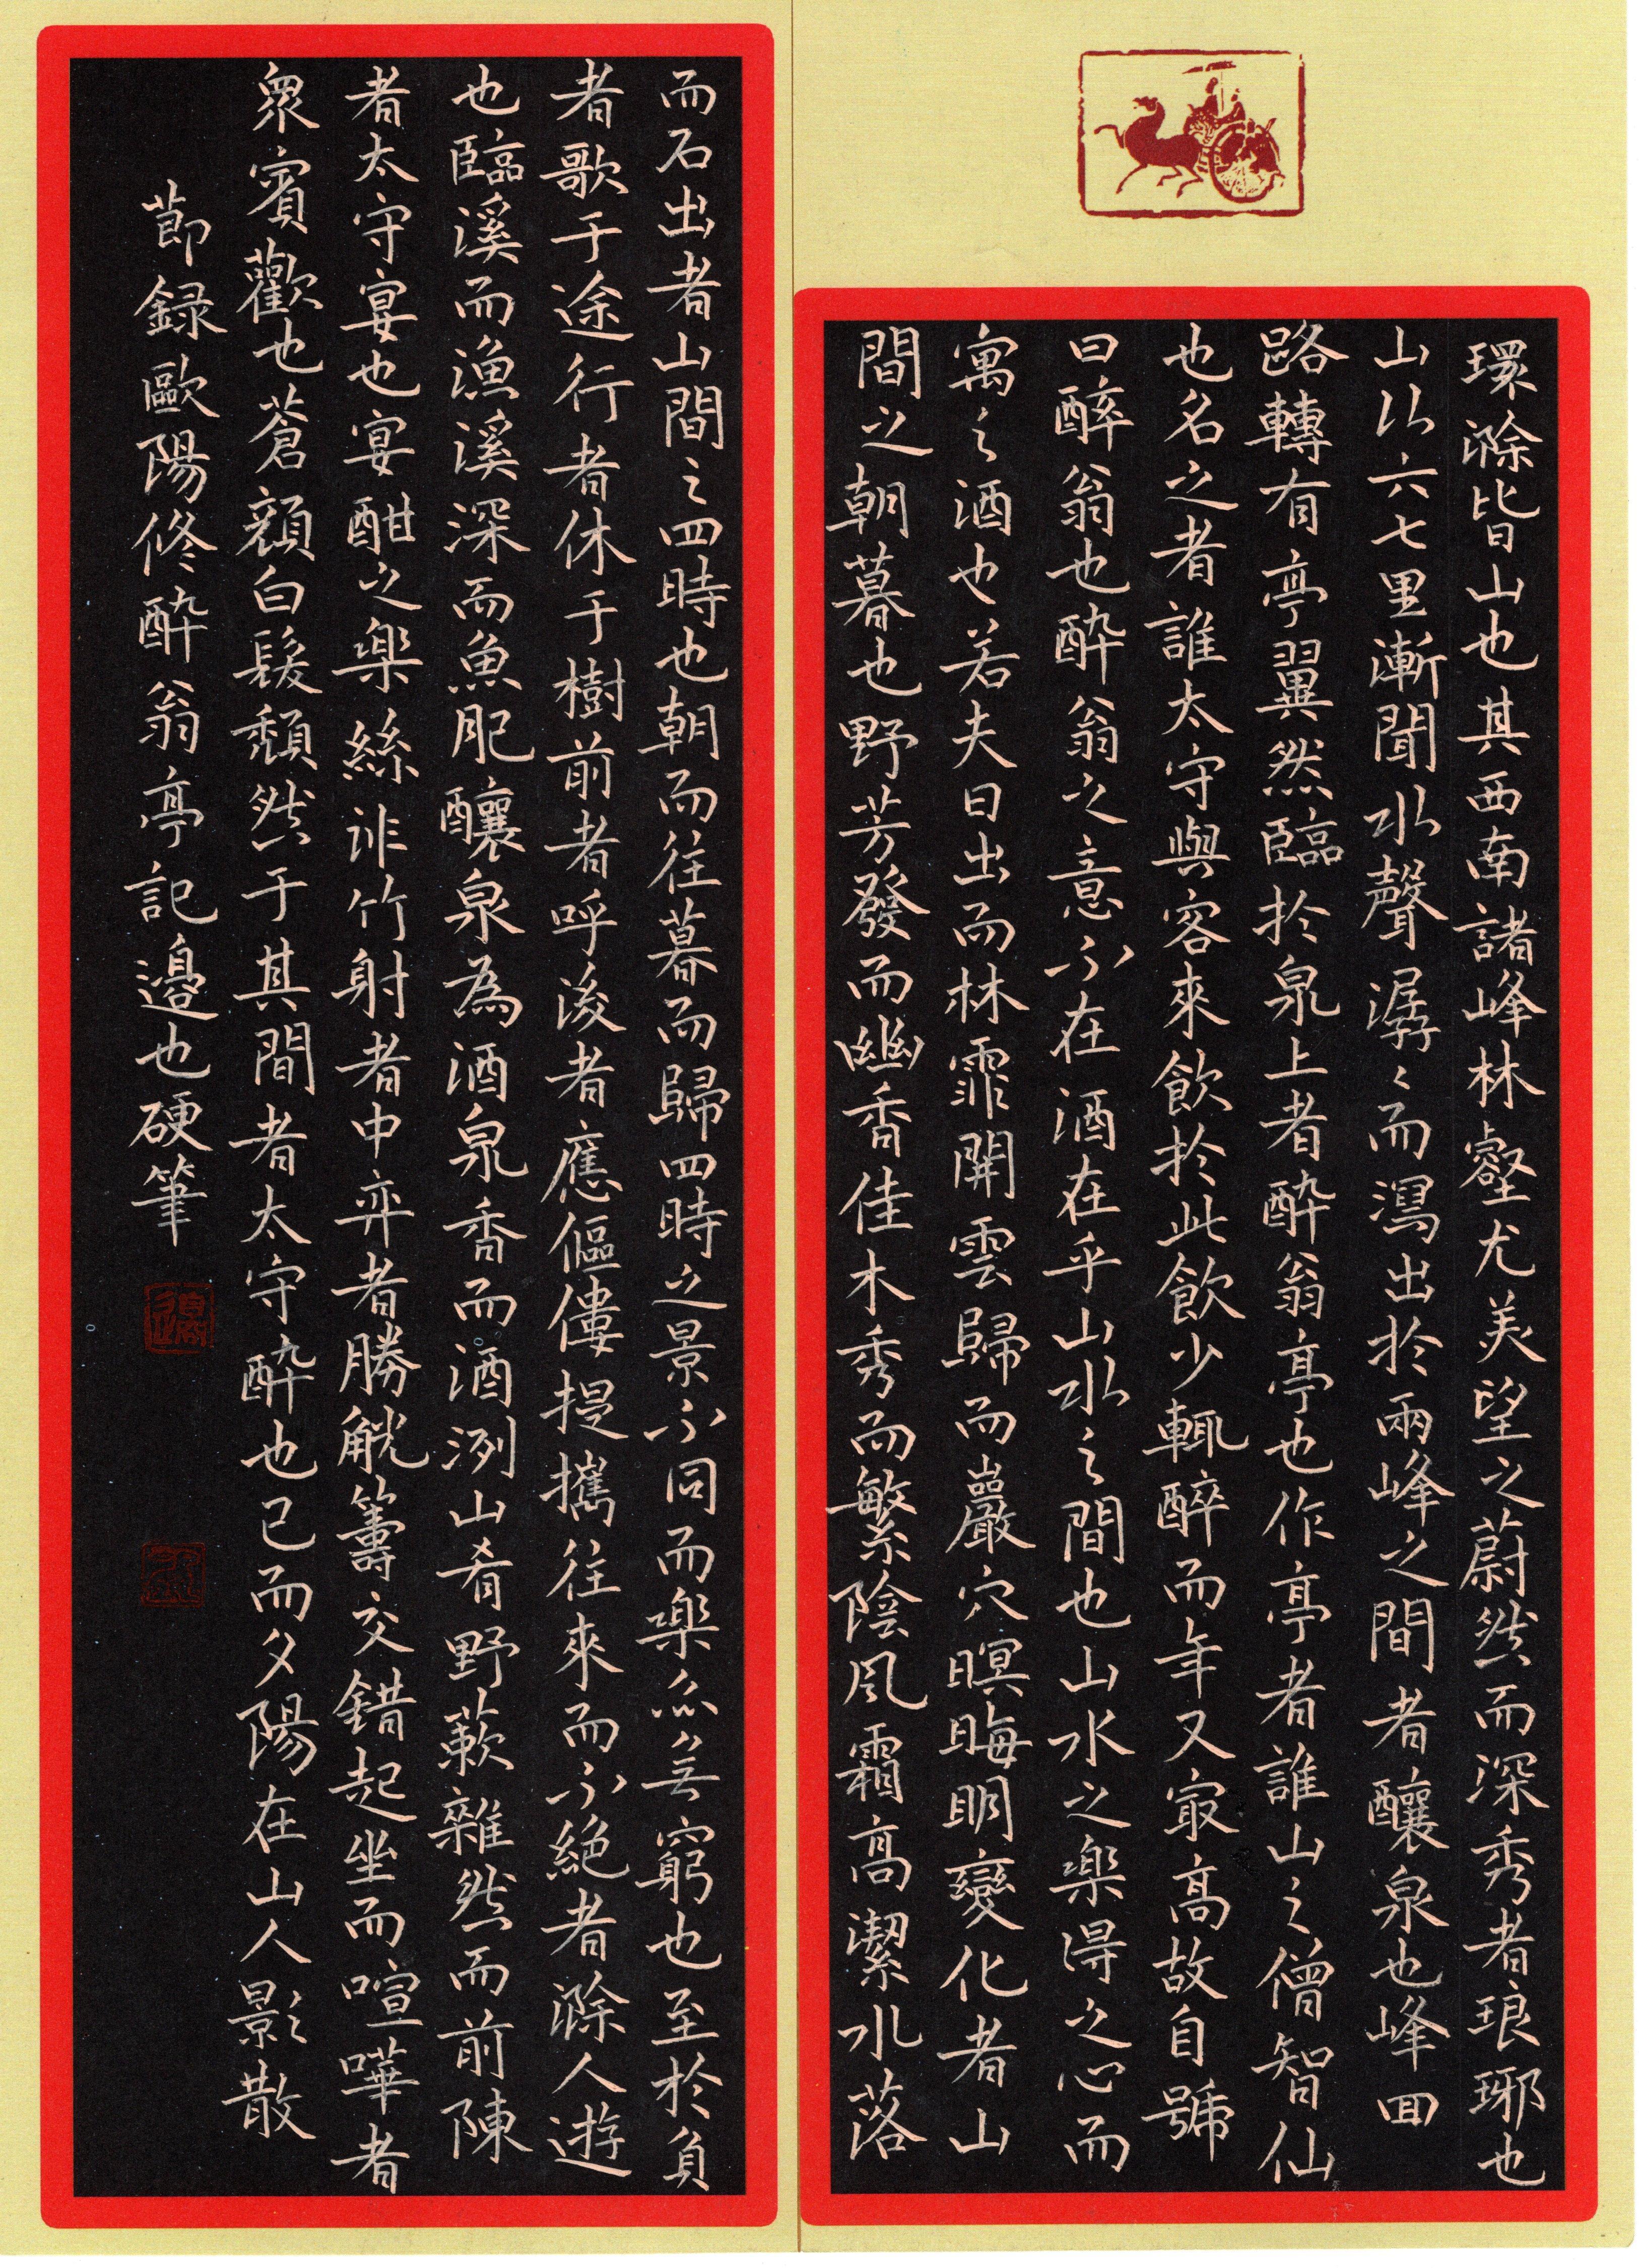 環滁皆山也其西南諸峰林壑尤美望之蔚然而深秀者琅琊也
山行六七里漸聞水聲潺々而瀉出於兩峰之間者釀泉也峰回
路轉有亭翼然臨於泉上者醉翁亭也作亭者誰山之僧智仙
也名之者誰太守與客來飲於此飲少輒醉而年又最高故自號
曰醉翁也醉翁之意不在酒在乎山水之間也山水之樂得之心而
寓之酒也若夫日出而林霏開雲歸而巖穴暝晦明變化者山
間之朝暮也野芳發而幽香佳木秀而繁陰風霜高潔水落
而石出者山間之四時也朝而往暮而歸四時之景不同而樂亦无窮也至於負
者歌于途行者休于樹前者呼後者應傴僂提攜往來而不絕者滁人遊
也臨溪而漁溪深而魚肥釀泉為酒泉香而酒洌山肴野蔌雜然而前陳
者太守宴也宴酣之樂絲非竹射者中弈者勝觥籌交錯起坐而喧嘩者
眾賓歡也蒼顏白髮頹然于其間者太守醉也已而夕陽在山人影散
節錄歐陽修醉翁亭記邊也硬筆